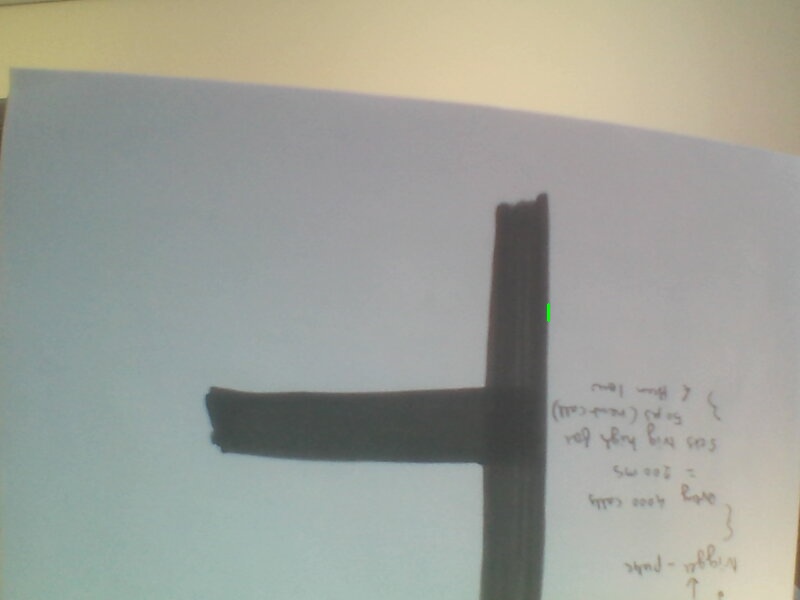 trigger - pulse
{ every 4000 calls
= 200 ms
sets trig high for
50 µs (next call)
& then low }